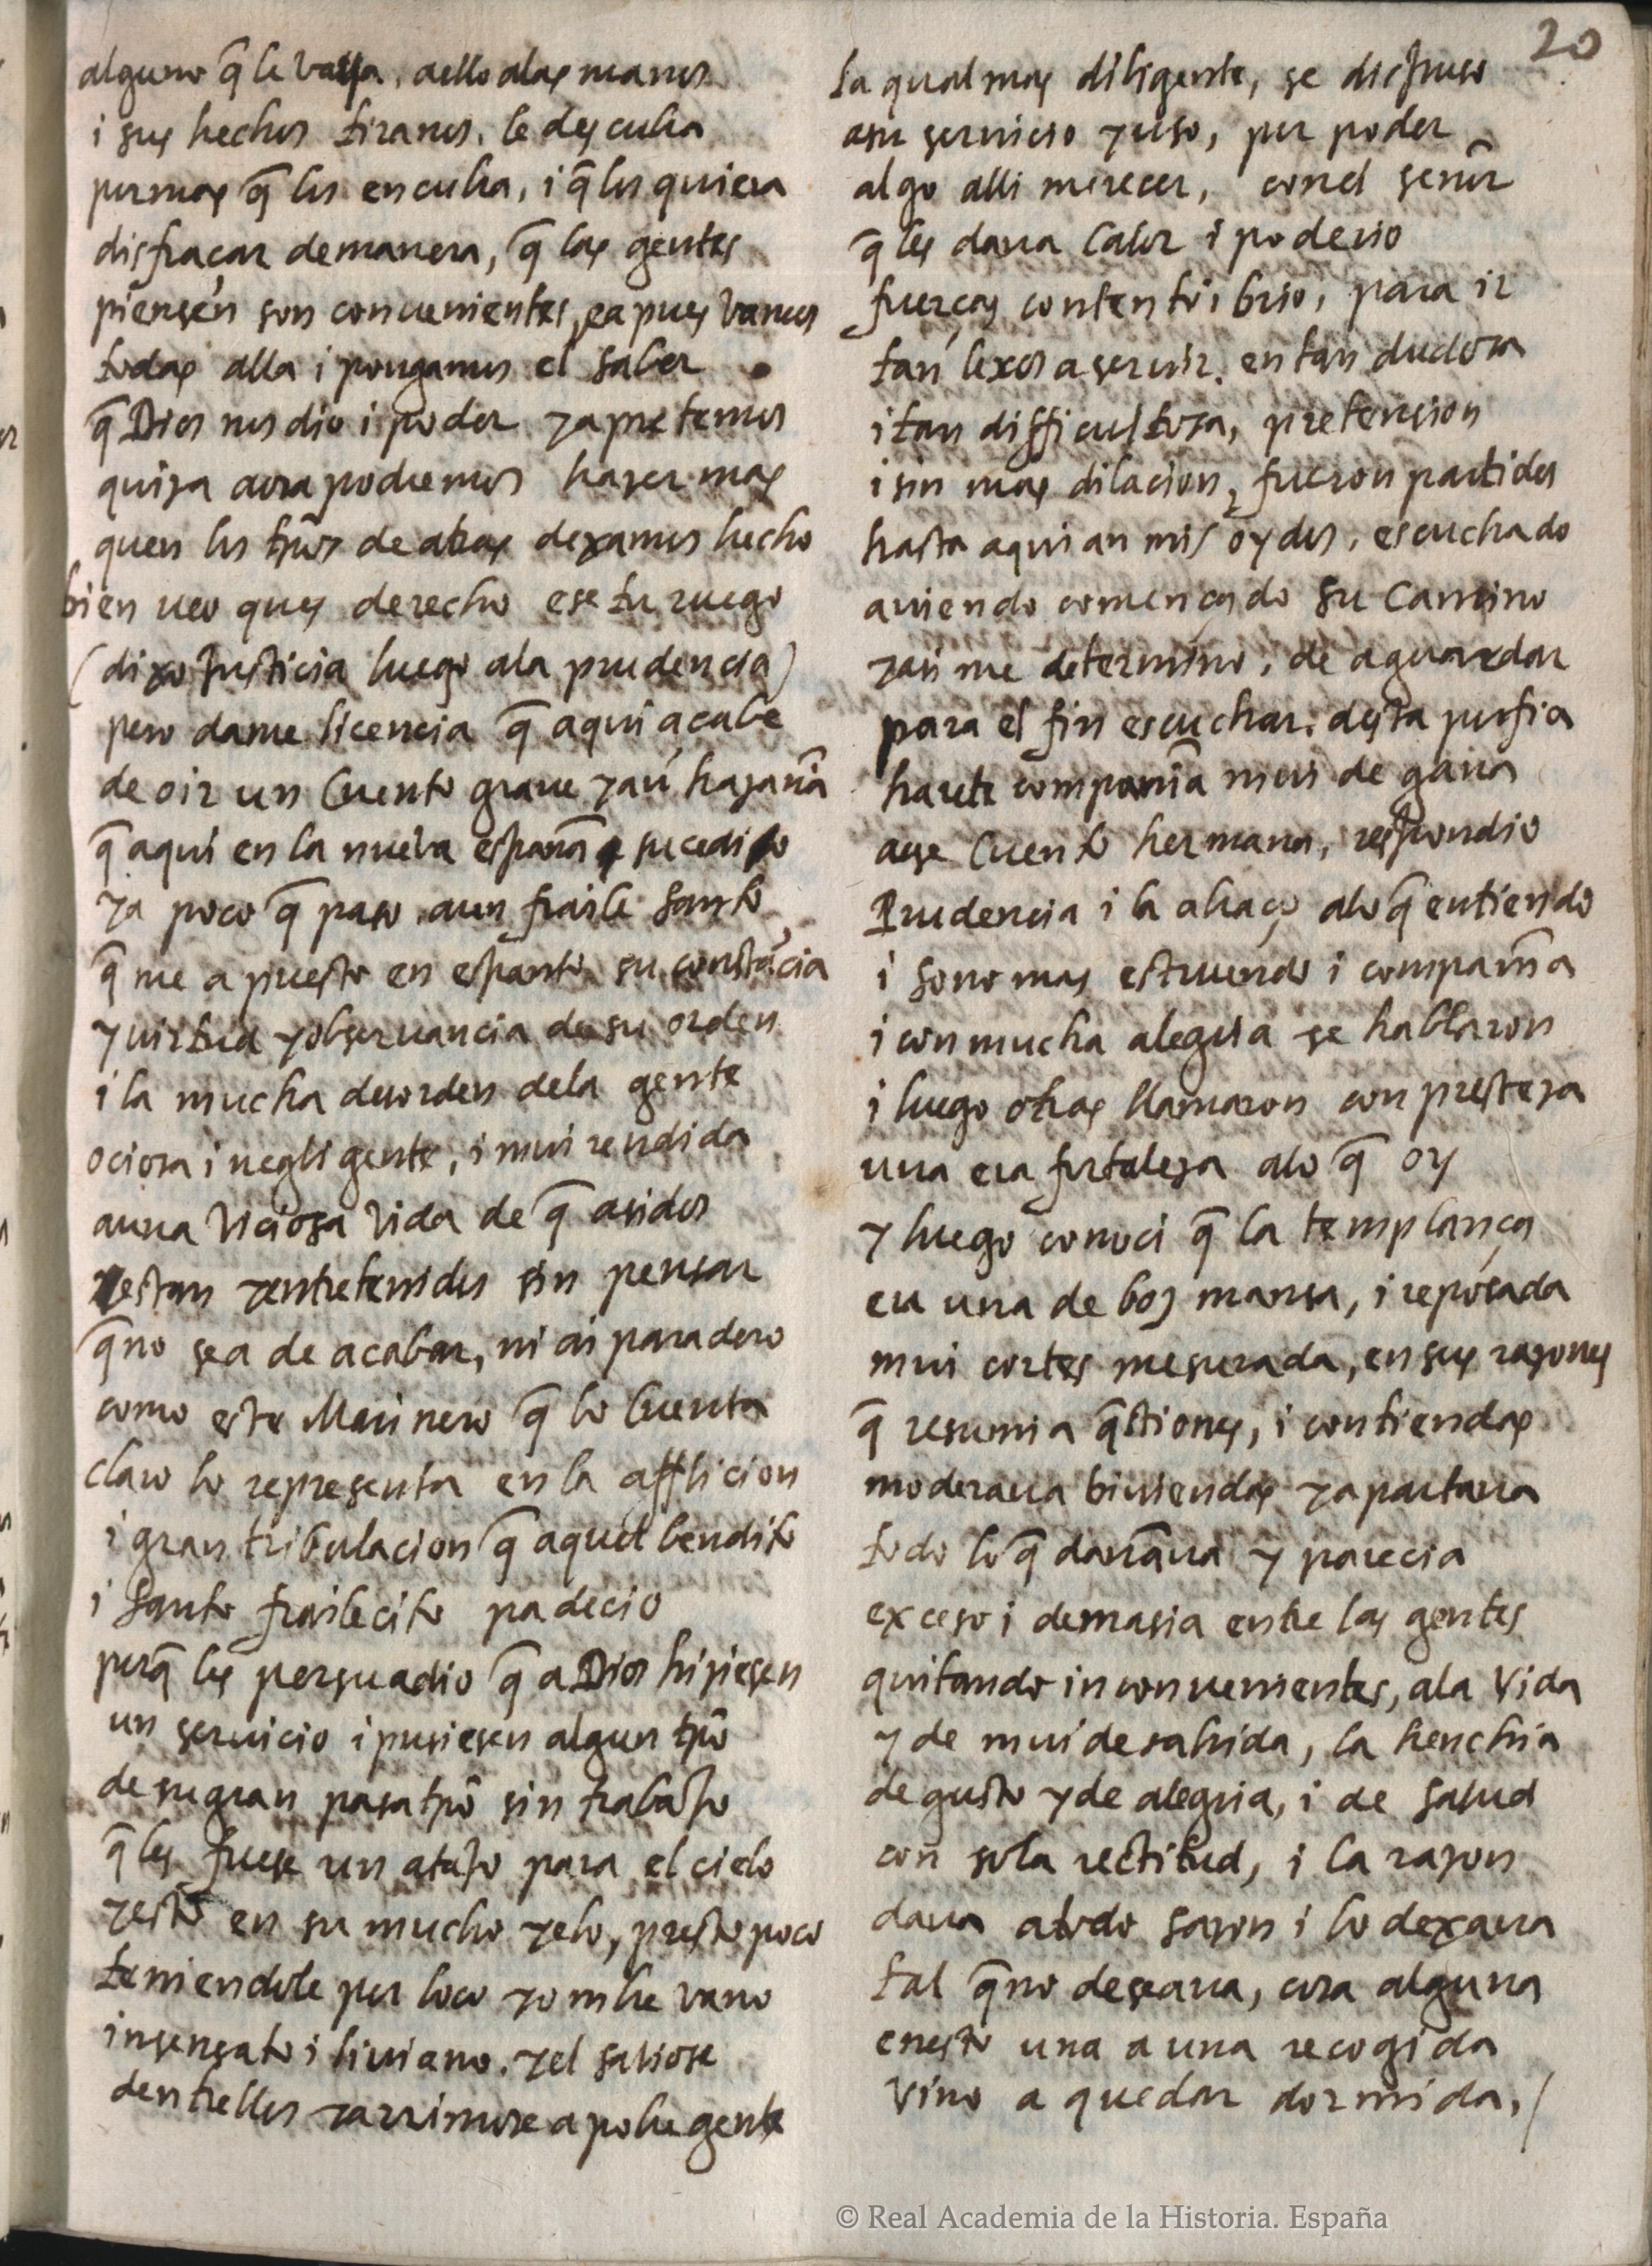 20
alguno q̄ le vaya. aello alas manos
i sus hechos tiranos. le descubra
por mas q̄ los encubra, i q̄ los quiera
disfraçar de manera, q̄ las gentes
piensen son conuenientes, ea pues vamos
todas alla i pongamos el saber
q̄ Dios nos dio i poder yapretemos
quiza aora podremos hazer mas
quen los tp̄os de atras dexamos hecho
bien veo ques derecho ese tu ruego
(dixo Justicia luego ala prudencia)
pero dame licencia q̄ aqui acabe
de oir un Cuento graue yaun hazaña
q̄ aqui en la nueba españa sucedido
ya poco q̄ paso aun fraile santo
q̄ me a puesto en espanto su constācia
y uirtud yobseruancia de su orden
i la mucha desorden dela gente
ociosa i negligente, i mui rendida
auna Viciosa Vida de q̄ asidos
estan yentretenidos sin pensar
q̄ no sea de acabar, ni ai paradero
como este Marinero q̄ lo Cuenta
claro lo representa en la afflicion
i gran tribulacion q̄ aquel bendito
i santo frailecito padecio
porq̄ les persuadio q̄ a Dios hiziesen
un seruicio i pusiesen algun tp̄o
de su gran pasatp̄o sin trabajo
q̄ les fuese un atajo para el cielo
yesto en su mucho zelo, presto poco
teniendole por loco yombre vano
insensato i liuiano. yel saliose
dentrellos yarrimose a pobre gente
la qual mas diligente, se dispuso
asu seruicio yuso, por poder
algo alli merecer, conel señor
q̄ les daua Calor i poderio
fuerças contento i brio, para ir
tan lexos a seruir. en tan dudosa
i tan difficultosa, pretension
i sin mas dilacion, fueron partidos
hasta aqui an mis oydos, escuchado
auiendo començado su Camino
yasi me determino, de aguardar
para el fin escuchar. desta porfia
harete compañia mui de gana
aese Cuento hermana, respondio
Prudencia i la abraço alo q̄ entiendo
i sono mas estruendo i compañia
i con mucha alegria se hablaron
i luego otras llamaron con presteza
una era fortaleza alo q̄ oy
y luego conoci q̄ la templança
era una de boz mansa, i reposada
mui cortes mesurada, en sus razones
q̄ resumia q̄stiones, i contiendas
moderaua biuiendas yapartaua
todo lo q̄ dañaua y parecia
exceso i demasia entre las gentes
quitando inconuenientes, ala Vida
y de mui desabrida, la henchia
de gusto yde alegria, i de salud
con sola rectitud, i la razon
daua atodo sazon i lo dexaua
tal q̄ no deseaua, cosa alguna
enesto una a una recogida
Vino a quedar dormida,
© Real Academia de la Historia. España